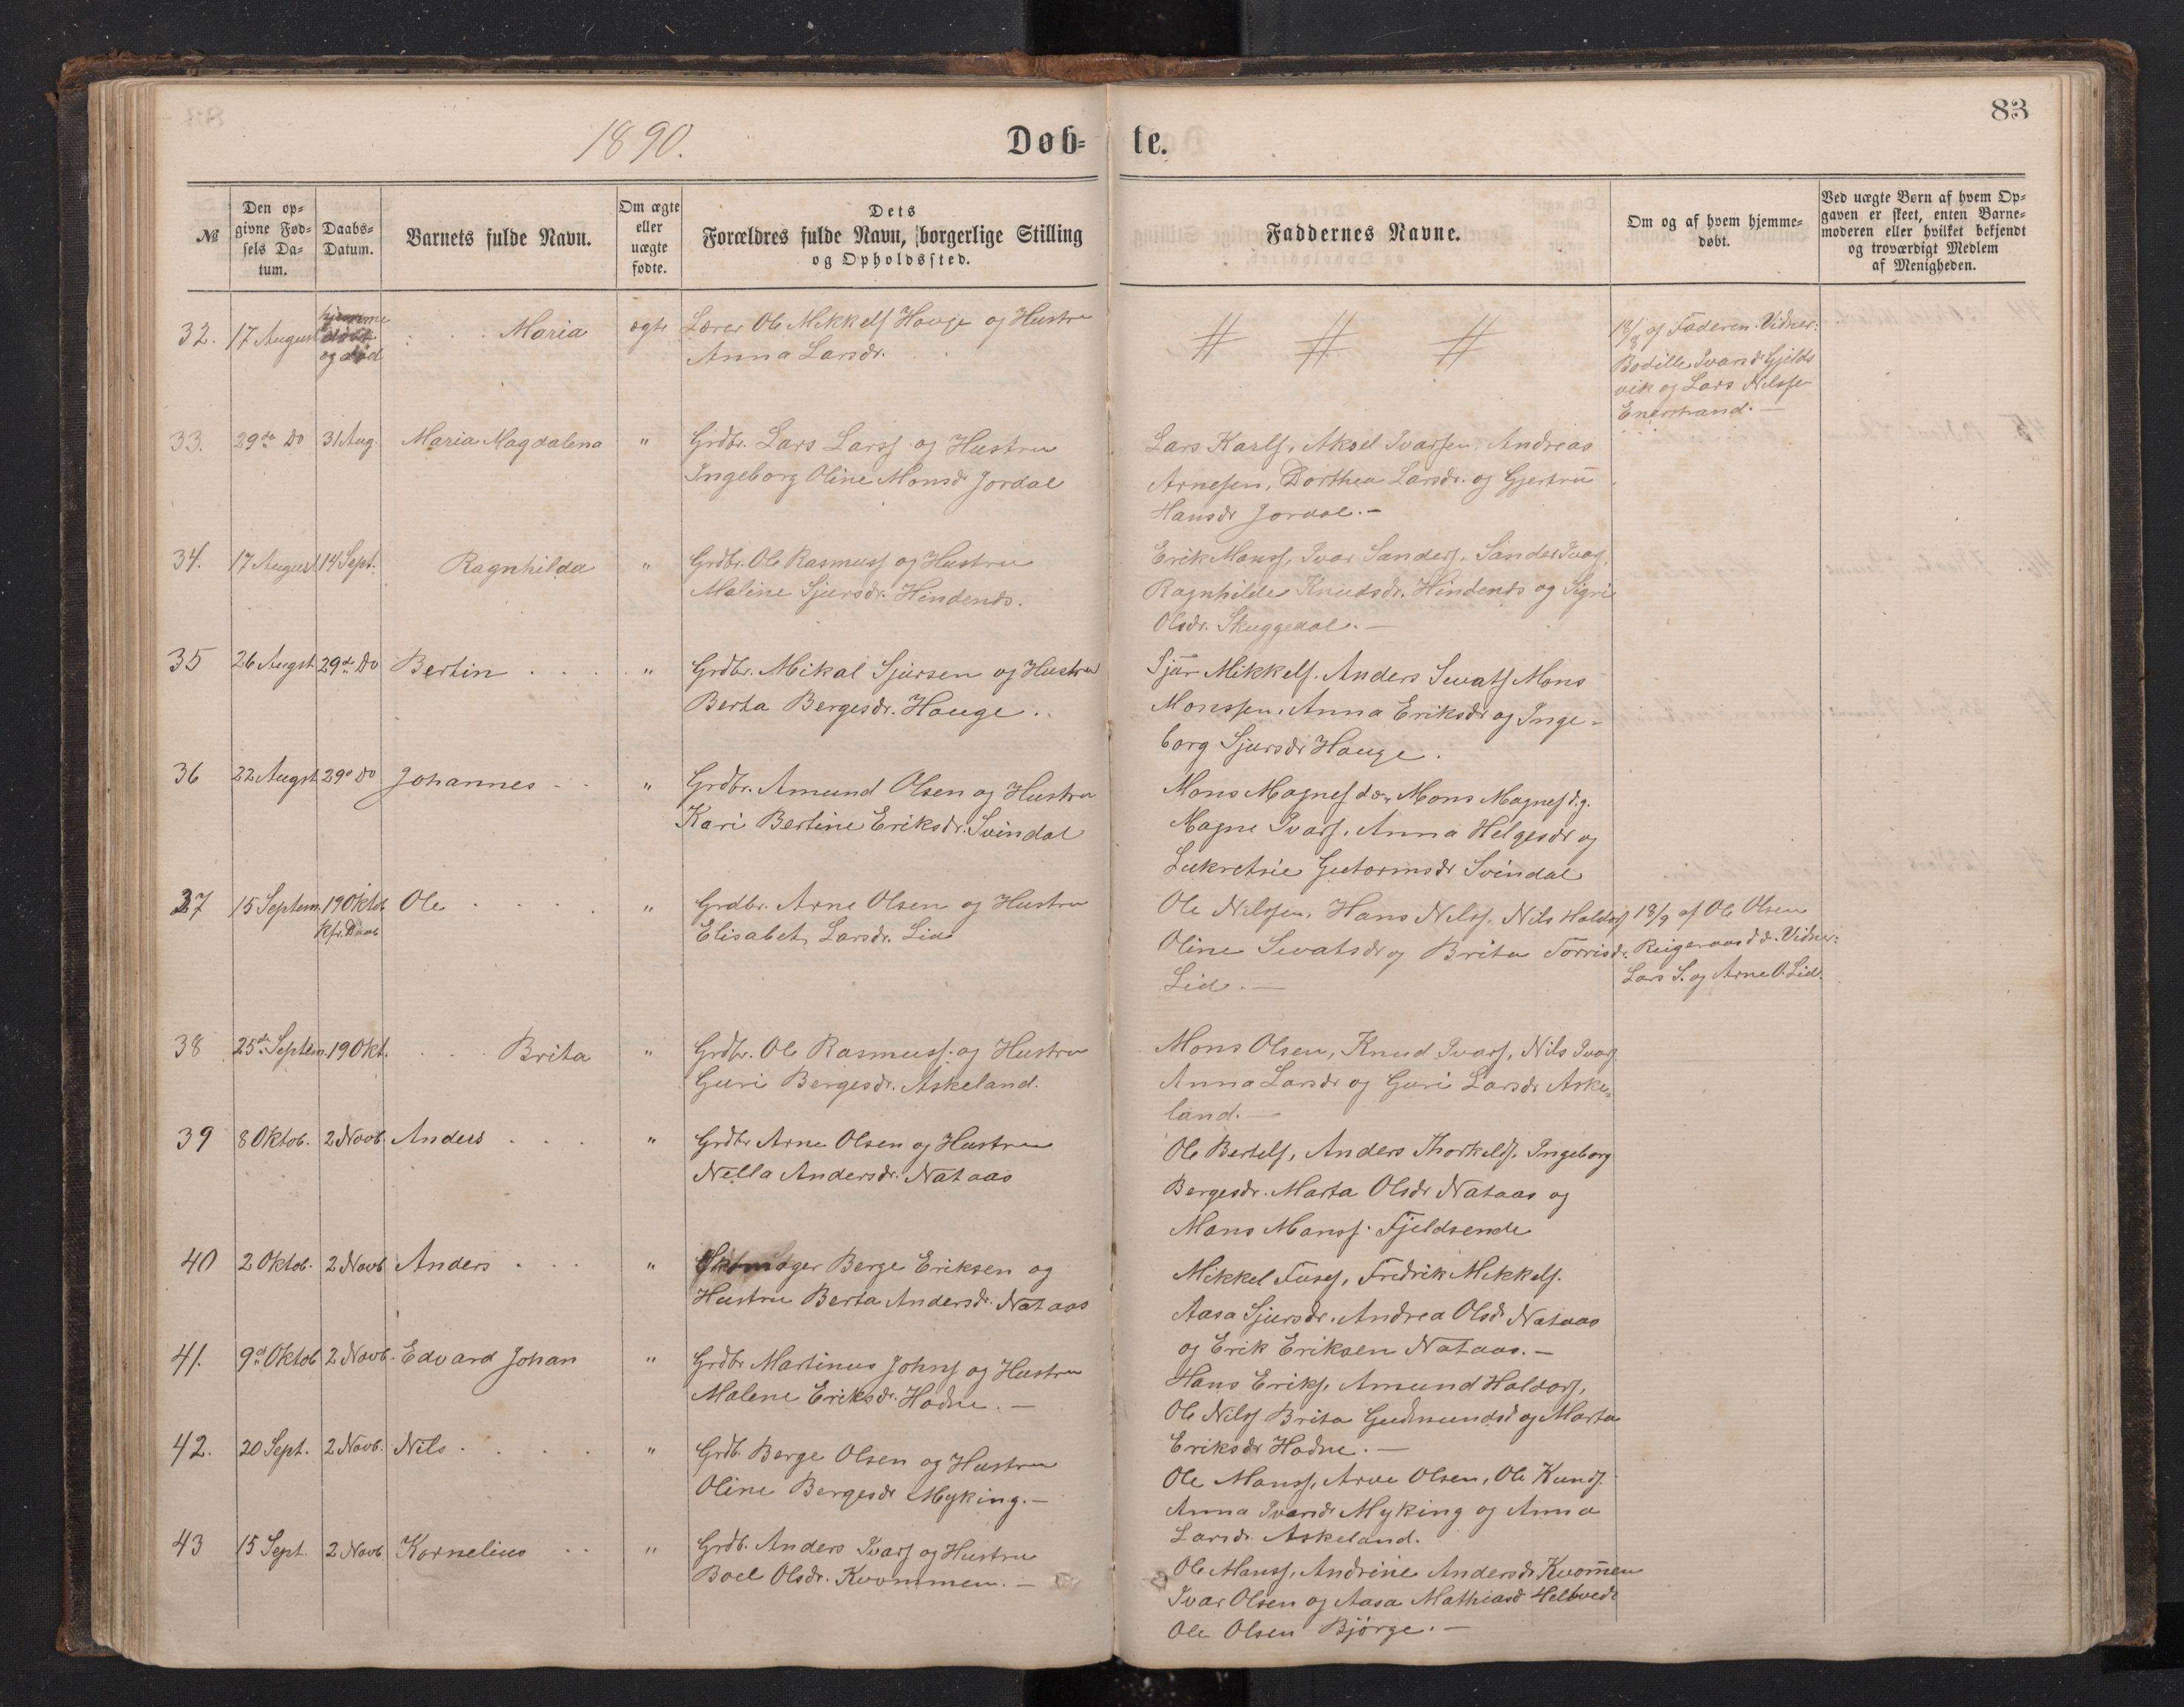 83
1890.
Døb-
te.
№
Den op-
givne Fød-
sels Da-
tum.
Daabs-
Datum.
Barnets fulde Navn.
Om ægte
eller
uægte
fødte.
Dets
Forældres fulde Navn, borgerlige Stilling
og Opholdssted.
Faddernes Navne.
Om og af hvem hjemme-
døbt.
Ved uægte Børn af hvem Op-
gaven er skeet, enten Barne-
moderen eller hvilket bekjendt
og troværdigt Medlem
af Menigheden.
32. 17 August hjemme
døbt
og død
Maria ægte Lærer Ole Mikkels. Hauge og Hustru
Anna Larsdr.
# # #
18/8 af Faderen. Vidner:
Bodille Ivarsdr Gjelds
vik og Lars Nilssen
Enerstrand. —
33. 29de Do 31 Aug. Maria Magdalena " Grdbr. Lars Larss. og Hustru
Ingeborg Oline Monsdr Jordal
Lars Karls, Aksel Ivarsen, Andreas
Arnesen, Dorthea Larsdr. og Gjertru
Hansdr Jordal. —
34. 17 August 14 Sept. Ragnhilda " Grdbr. Ole Rasmuss og Hustru
Maline Sjursdr. Hindenes.
Erik Monss, Ivar Sanders, Sander Ivars,
Ragnhilde Knudsdr. Hindenes og Sigri
Olsdr. Skuggedal. —
35 26 Augst. 29de Do Bertin . . . " Grdbr. Mikal Sjursen og Hustru
Berta Bergesdr. Hauge.
Sjur Mikkels. Anders Sivats Mons
Monssen. Anna Eriksdr og Inge-
borg Sjursdr Hauge.
36 22 Augst. 29de Do Johannes . . " Grdbr. Amund Olsen og Hustru
Kari Bertine Eriksdr. Svindal
Mons Magnes d.æ. Mons Magnes d.y.
Magne Ivars. Anna Helgesdr og
Lukretsie Gutormsdr Svindal
37 15 Septem. 19 Oktob.
Kfr. Daab
Ole . . . . " Grdbr. Arne Olsen og Hustru
Elisabet Larsdr. Lid
Ole Nilssen, Hans Nilss. Nils Haldors
Oline Sivatsdr og Brita Torrisdr.
Lid. —
18/9 af Ole Olsen
Reigeraas d.æ. Vidner:
Lars S. og Arne O. Lid.
38 25de Septem. 19 Okt. . . . Brita " Grdbr. Ole Rasmuss. og Hustru
Guri Bergesdr. Askeland.
Mons Olsen, Knud Ivars, Nils Ivars
Anna Larsdr og Guri Larsdr Aske-
land. —
39 8 Oktob. 2 Novb. Anders . . . " Grdbr Arne Olsen og Hustru
Nella Andersdr. Nataas
Ole Bertels, Anders Thorkelds. Ingeborg
Bergesdr. Marta Olsdr Nataas og
Mons Monss. Fjeldsende
40 2 Oktob. 2 Novb Anders . . . " Berge Eriksen og
Hustru Berta Andersdr. Nataas
Mikkel Fuses, Fredrik Mikkels.
Aasa Sjursdr. Andrea Olsdr Nataas
og Erik Eriksen Nataas. —
41. 9de Oktob 2 Novb. Edvard Johan " Grdbr Martinus Johns og Hustru
Malene Eriksdr. Hodne. —
Hans Eriks, Amund Haldors,
Ole Nilss Brita Gudmundsd og Marta
Eriksdr Hodne. —
42. 20 Sept. 2 Novb. Nils . . . . " Grdb. Berge Olsen og Hustru
Oline Bergesdr Myking. —
Ole Monss, Arve Olsen, Ole Knuds.
Anna Ivarsdr Myking og Anna
Larsdr. Askeland.
43 15 Sept. 2 Novb Kornelius . . " Grdb. Anders Ivars og Hustru
Boel Olsdr. Kvommen. —
Ole Monss, Andrine Andersdr Kvom̅en
Ivar Olsen og Aasa Mathiasd Helbvedt
Ole Olsen Bjørge. —